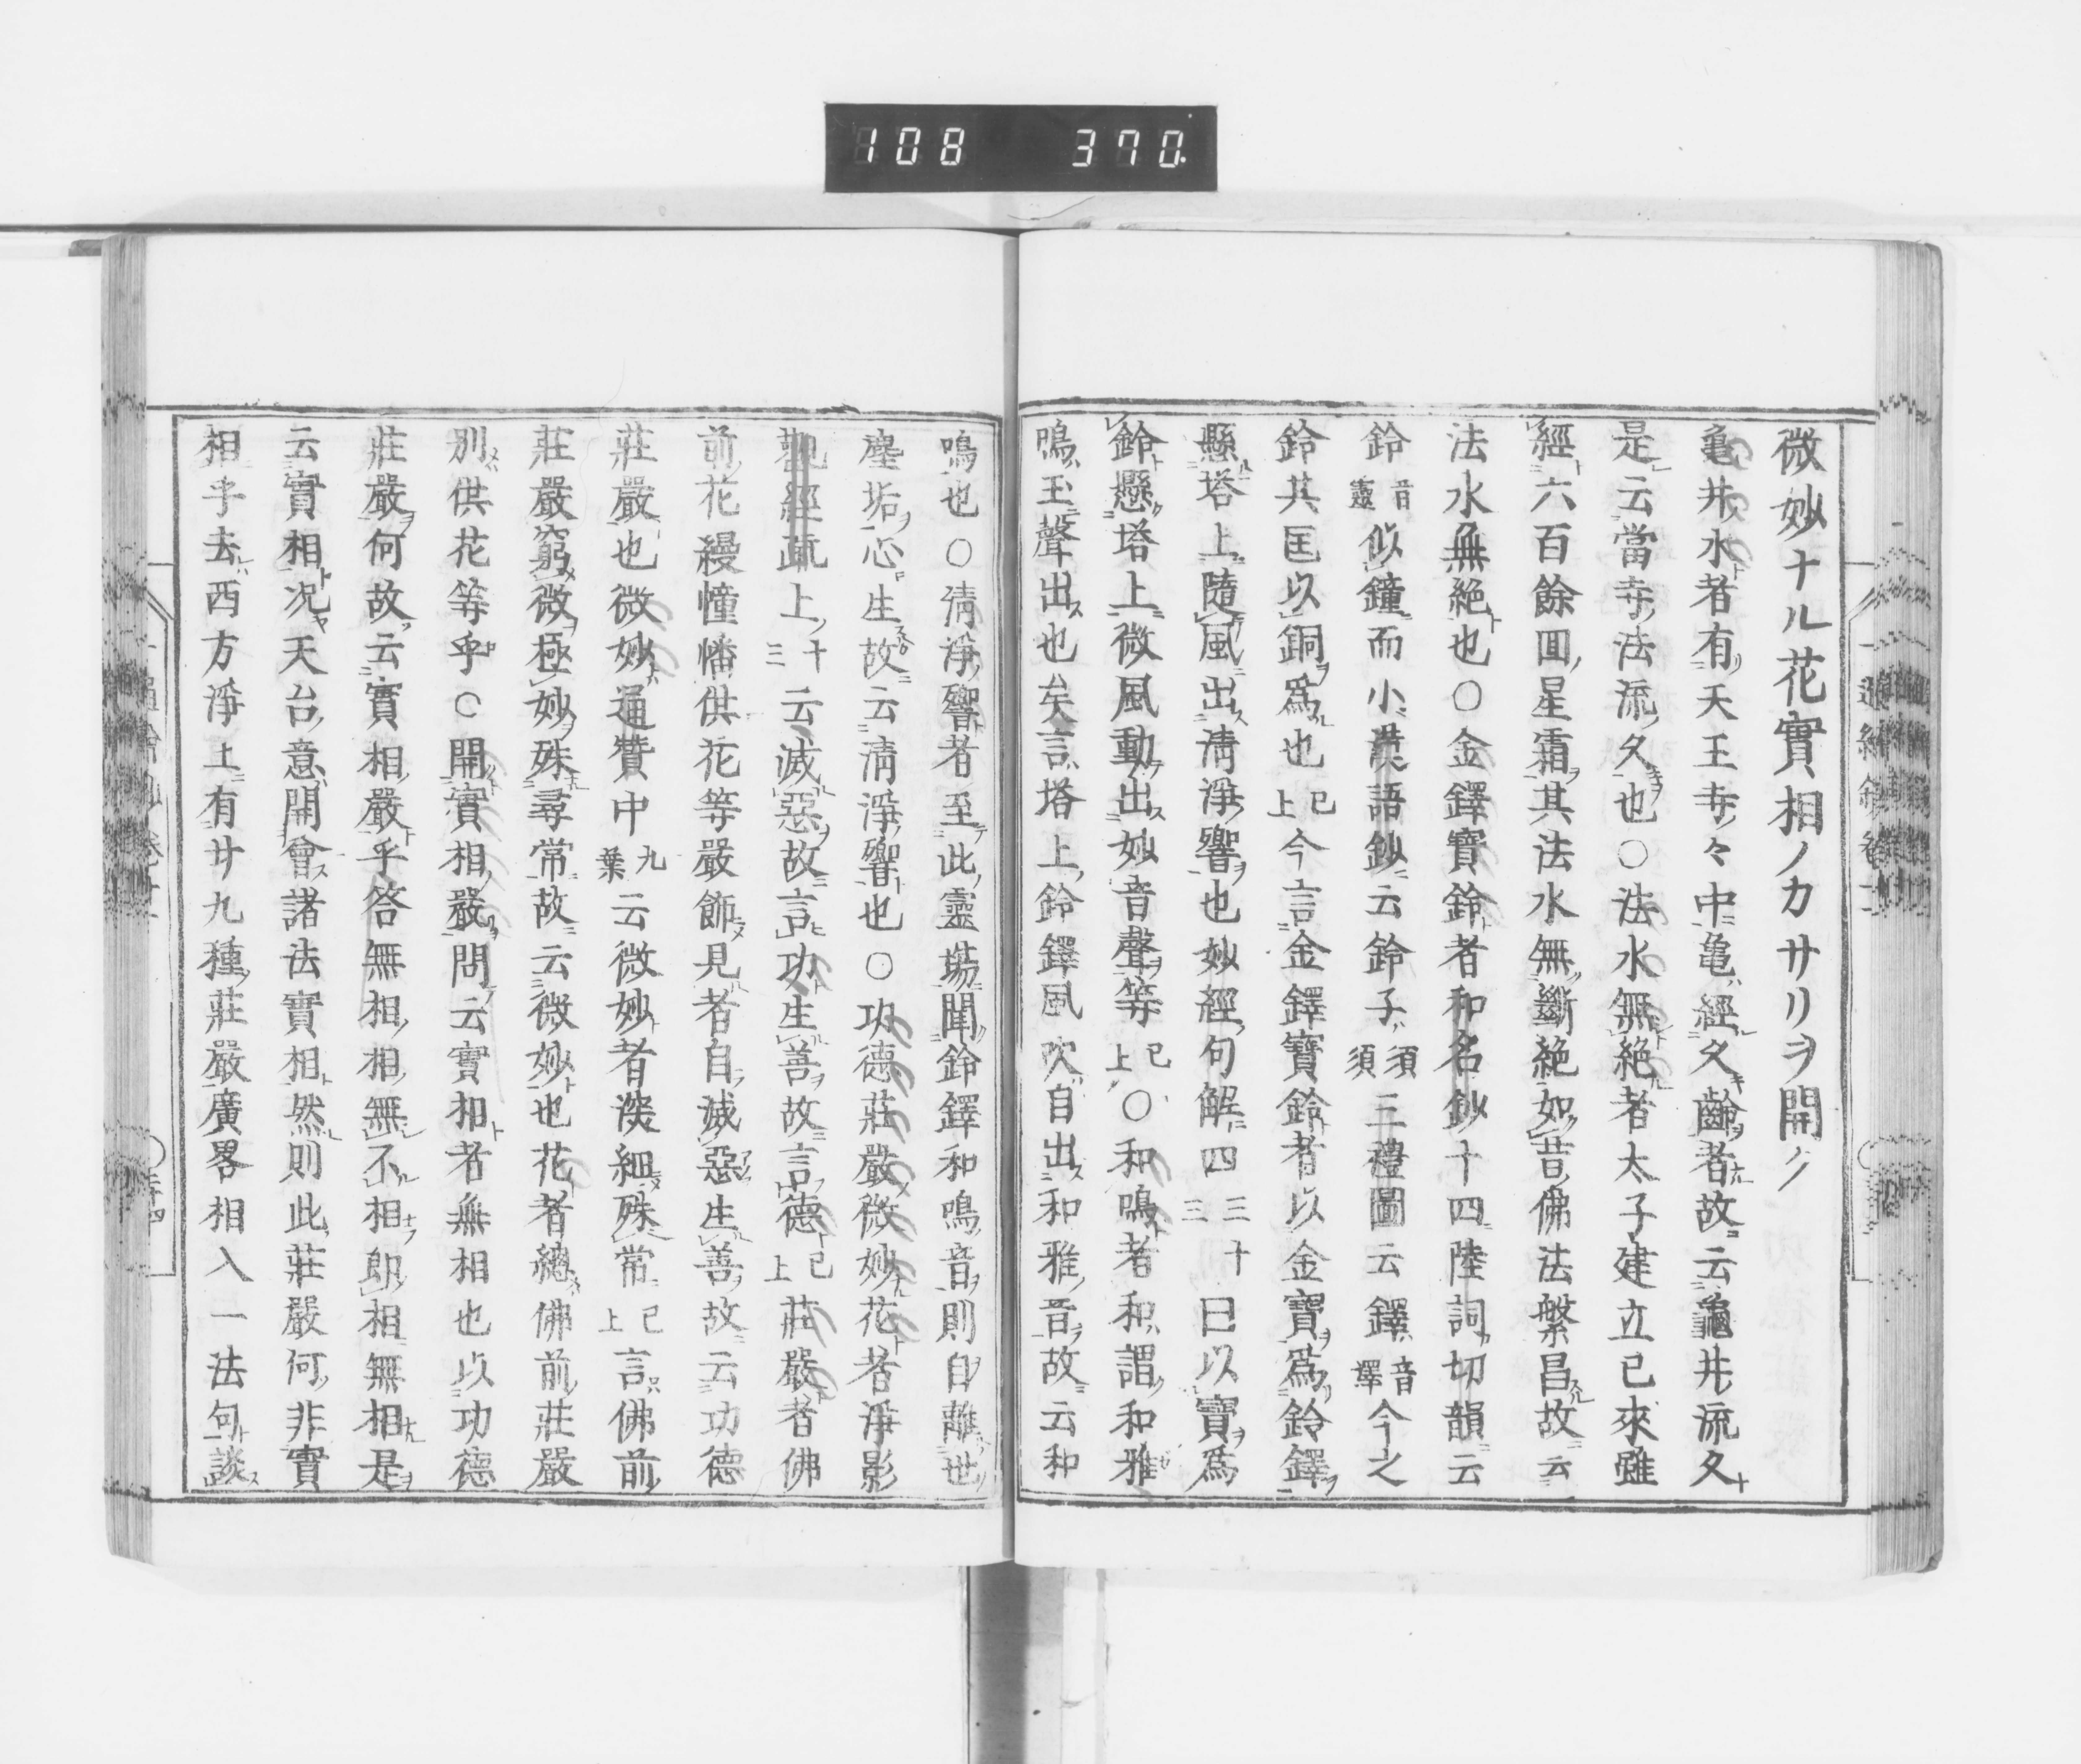 108 370
微妙ナル花實相ノカサリヲ開ク
亀井水者有天王寺々中亀經久齢者故云龜井流久
是云當寺法流久也○法水無絶者太子建立已來雖
經六百餘囬星霜其法水無斷絶如昔佛法繁昌故云
法水無絶也○金鐸寶鈴者和名鈔十四陸詞切韻云
鈴音靈似鐘而小漢語鈔云鈴子須須三禮圖云鐸音鐸今之
鈴其匡以銅爲也已上今言金鐸寶鈴者以金寶爲鈴鐸
懸塔上隨風出清淨響也妙經句解四三十三曰以寶爲
鈴懸塔上微風動出妙音聲等已上○和鳴者和謂和雅
鳴玉聲出也矣言塔上鈴鐸風吹自出和雅音故云和
鳴也○淸淨響者至此靈場聞鈴鐸和鳴音則自離世
塵垢心生故云淸淨響也○功德莊嚴微妙花者淨影
觀經疏上十三云滅惡故言功生善故言德已上莊嚴者佛
前花縵幢幡供花等嚴飾見者自滅惡生善故云功德
莊嚴也微妙通贊中九葉云微妙者淡細殊常已上言佛前
莊嚴窮微極妙殊尋常故云微妙也花者總佛前莊嚴
別供花等乎○開實相嚴問云實相者無相也以功德
莊嚴何故云實相嚴乎答無相相無不相即相無相是
云實相况天台意開會諸法實相然則此莊嚴何非實
相乎去西方淨土有廿九種莊嚴廣畧相入一法句談